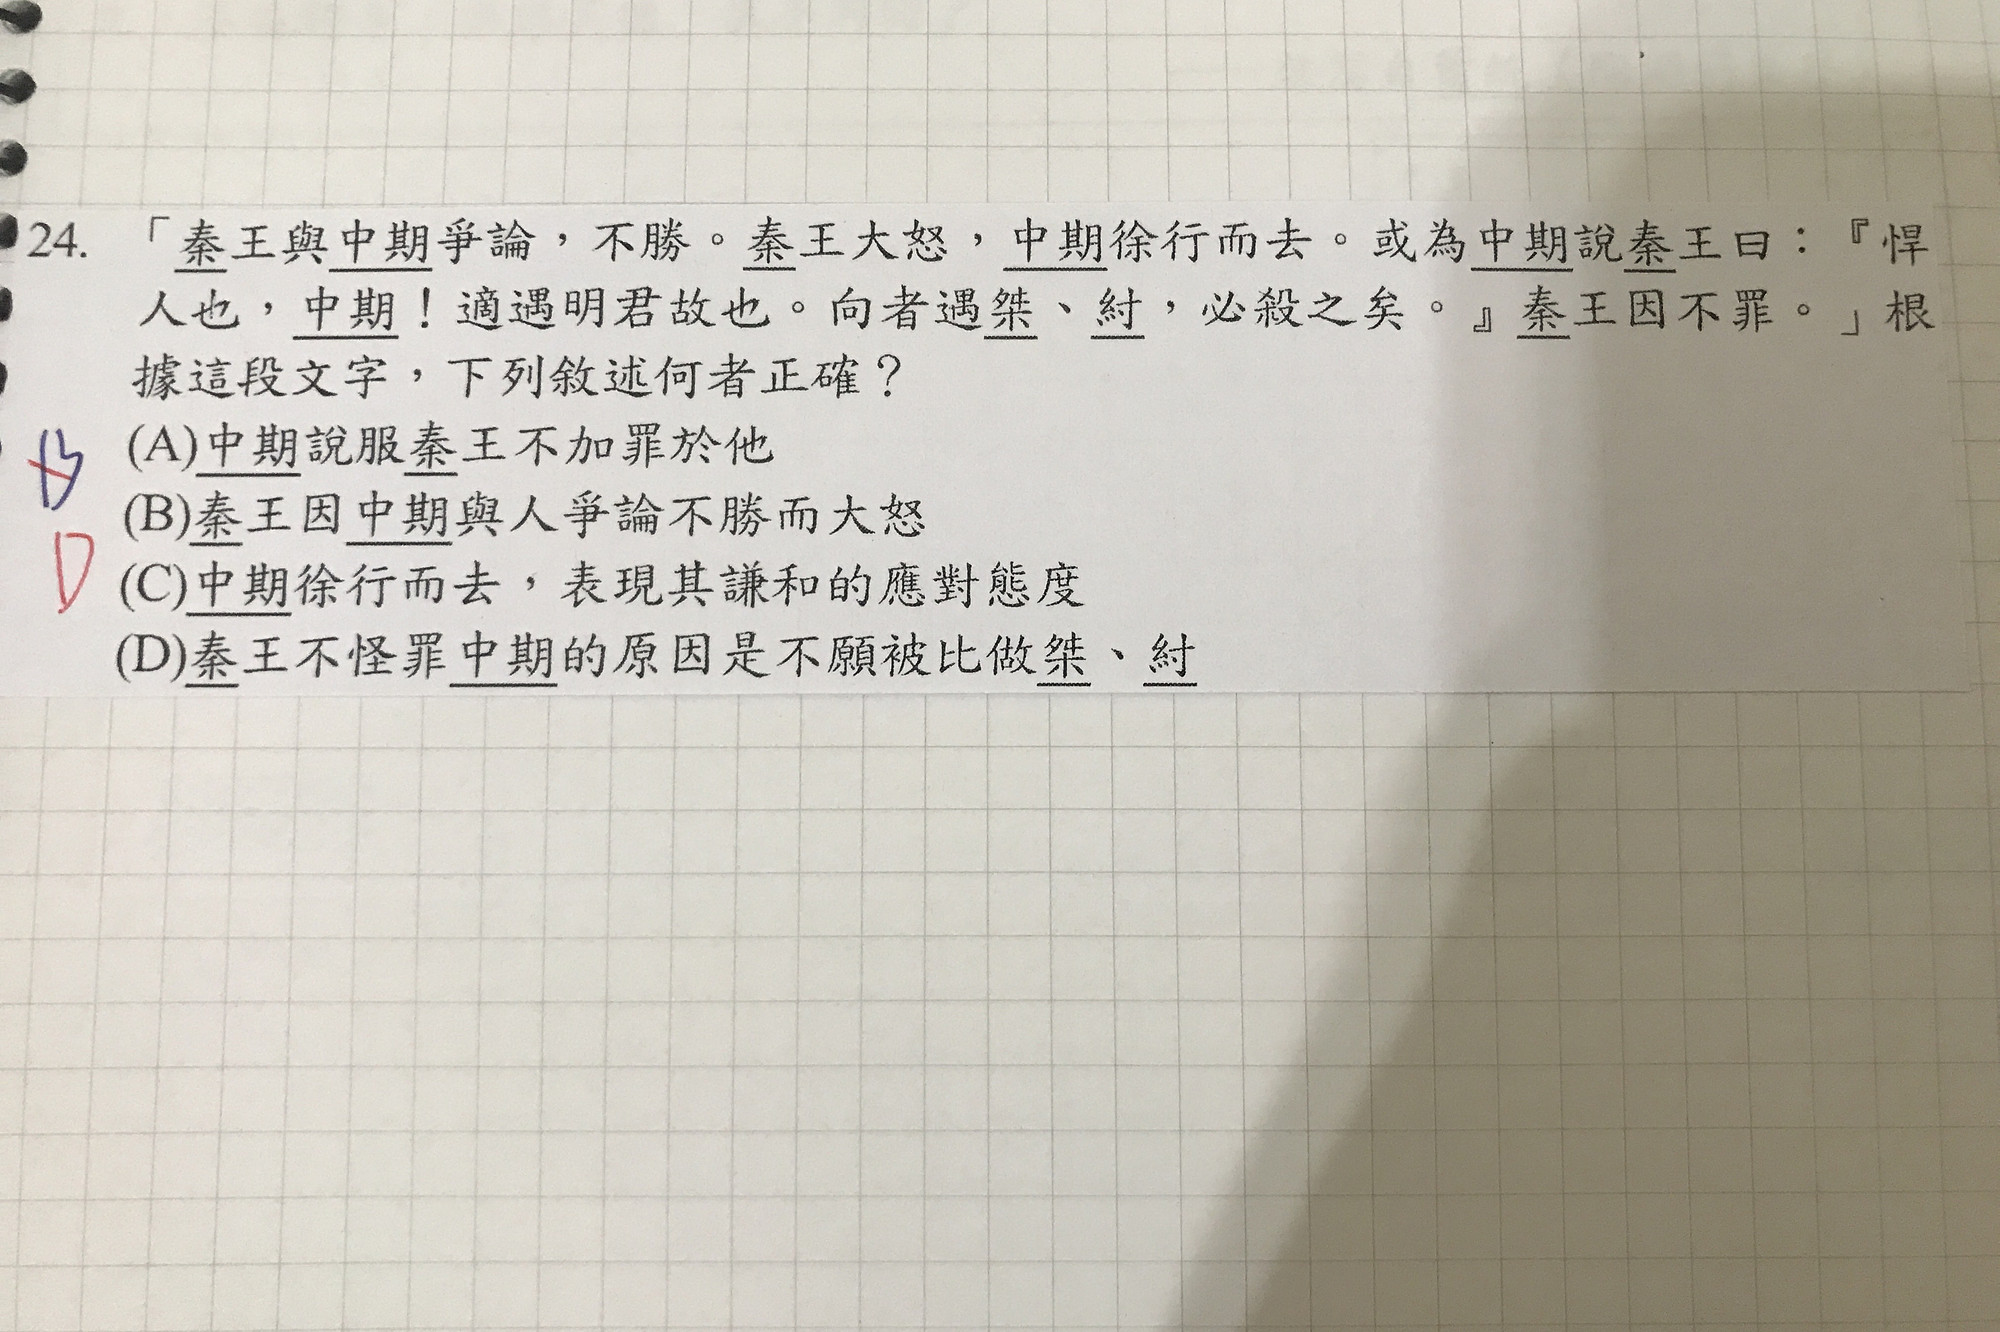 24. 「秦王與中期爭論，不勝。秦王大怒，中期徐行而去。或為中期說秦王曰：『悍
人也，中期！適遇明君故也。向者遇桀、紂，必殺之矣。』秦王因不罪。」根
據這段文字，下列敘述何者正確？
(A)中期說服秦王不加罪於他
B
(B)秦王因中期與人爭論不勝而大怒
D
(C)中期徐行而去，表現其謙和的應對態度
(D)秦王不怪罪中期的原因是不願被比做桀、紂